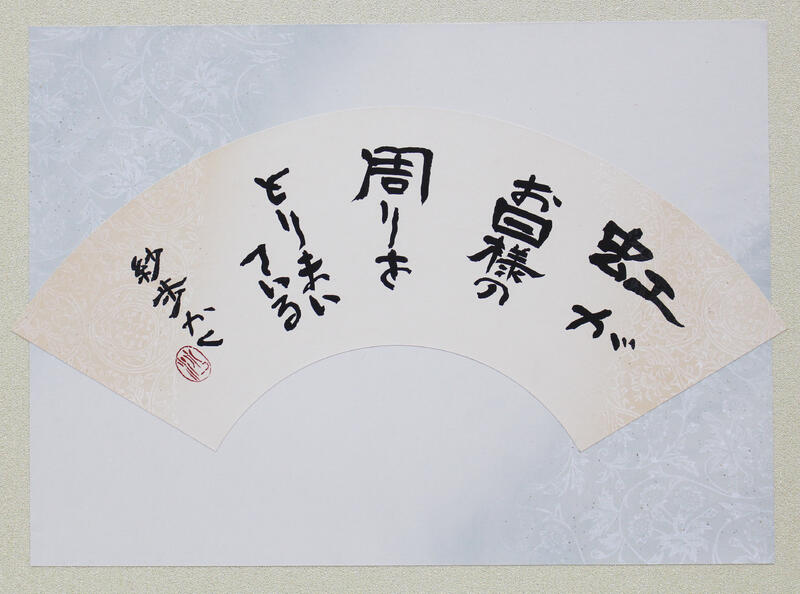 虹が
お日様の
周りを
とりまい
ている
紗歩かく